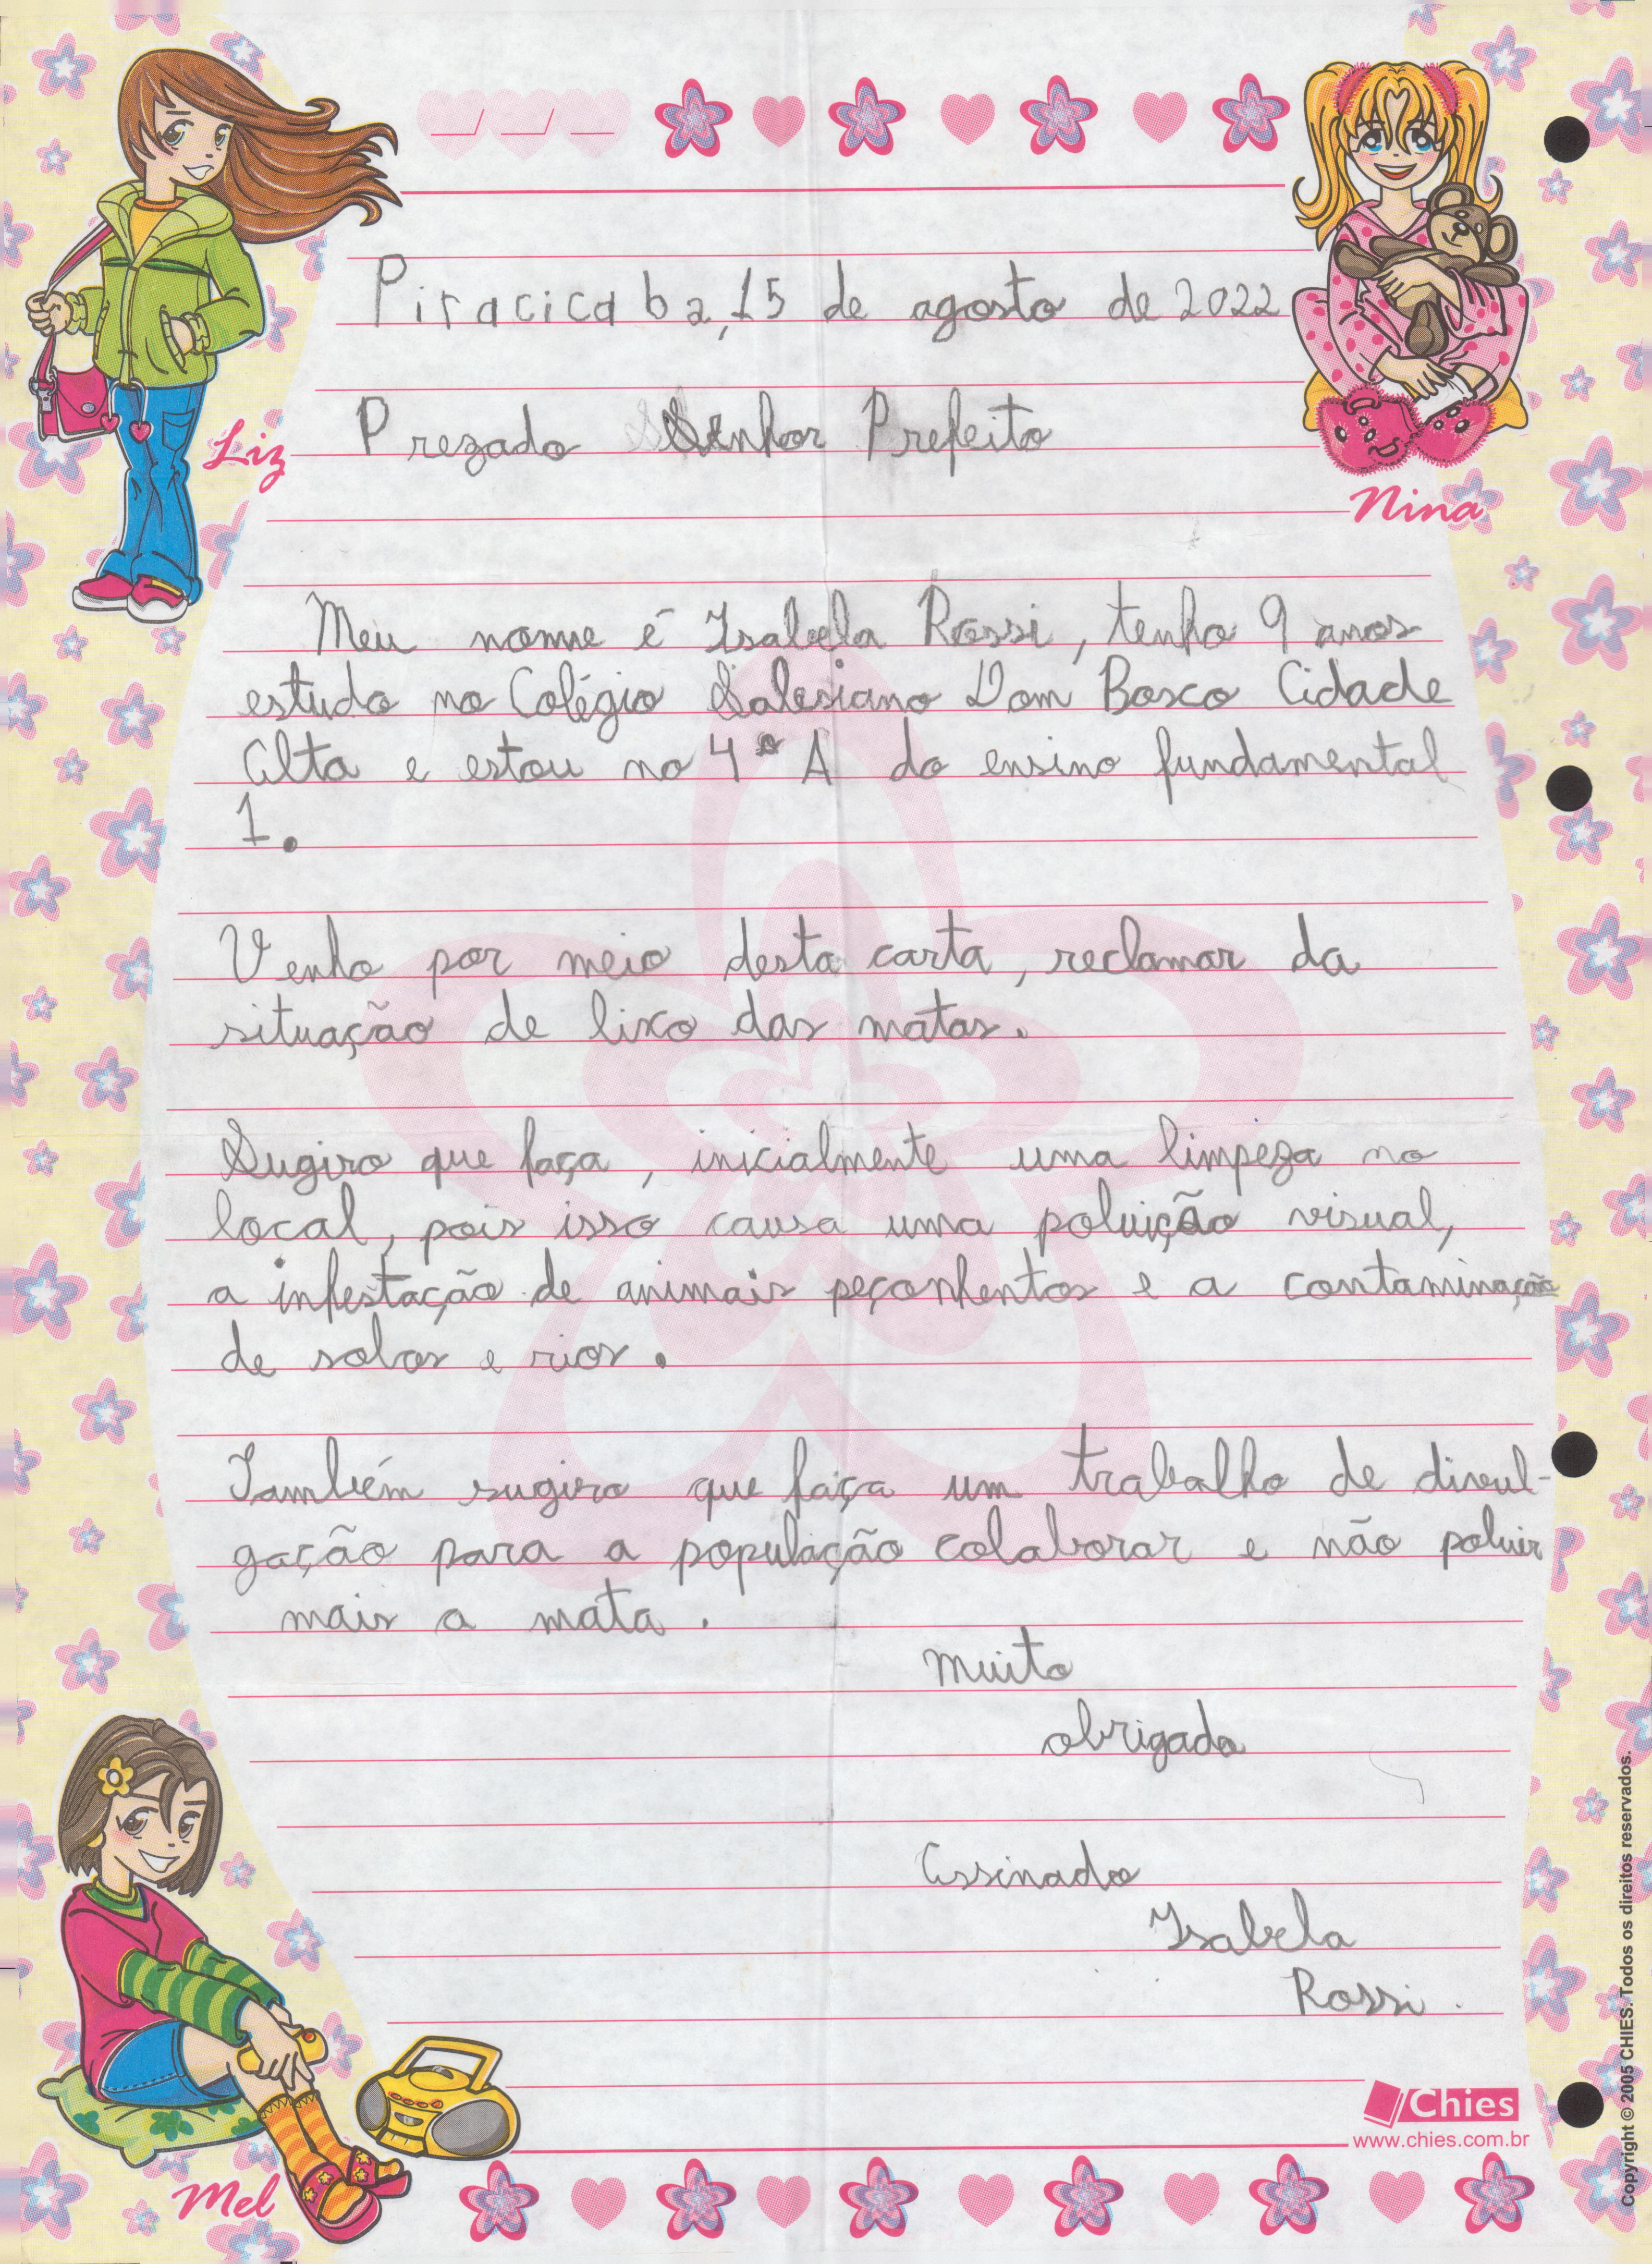 Piracicaba, 15 de agosto de 2022
Liz
Prezado Senhor Prefeito
Nina
Meu nome é Isabela Rossi, tenho 9 anos
estudo no Colégio Salesiano Dom Bosco Cidade
Alta e estou no 4º A do ensino fundamental
1.
Venho por meio desta carta, reclamar da
situação de lixo das matas.
Sugiro que faça, inicialmente uma limpeza no
local, pois isso causa uma poluição visual,
a infestação de animais peçonhentos e a contaminação
de solos e rios.
Também sugiro que faça um trabalho de divul-
gação para a população colaborar e não poluir
mais a mata.
Muito
obrigado
Assinado
Isabela
Rossi.
Chies
www.chies.com.br
Mel
Copyright © 2005 CHIES. Todos os direitos reservados.